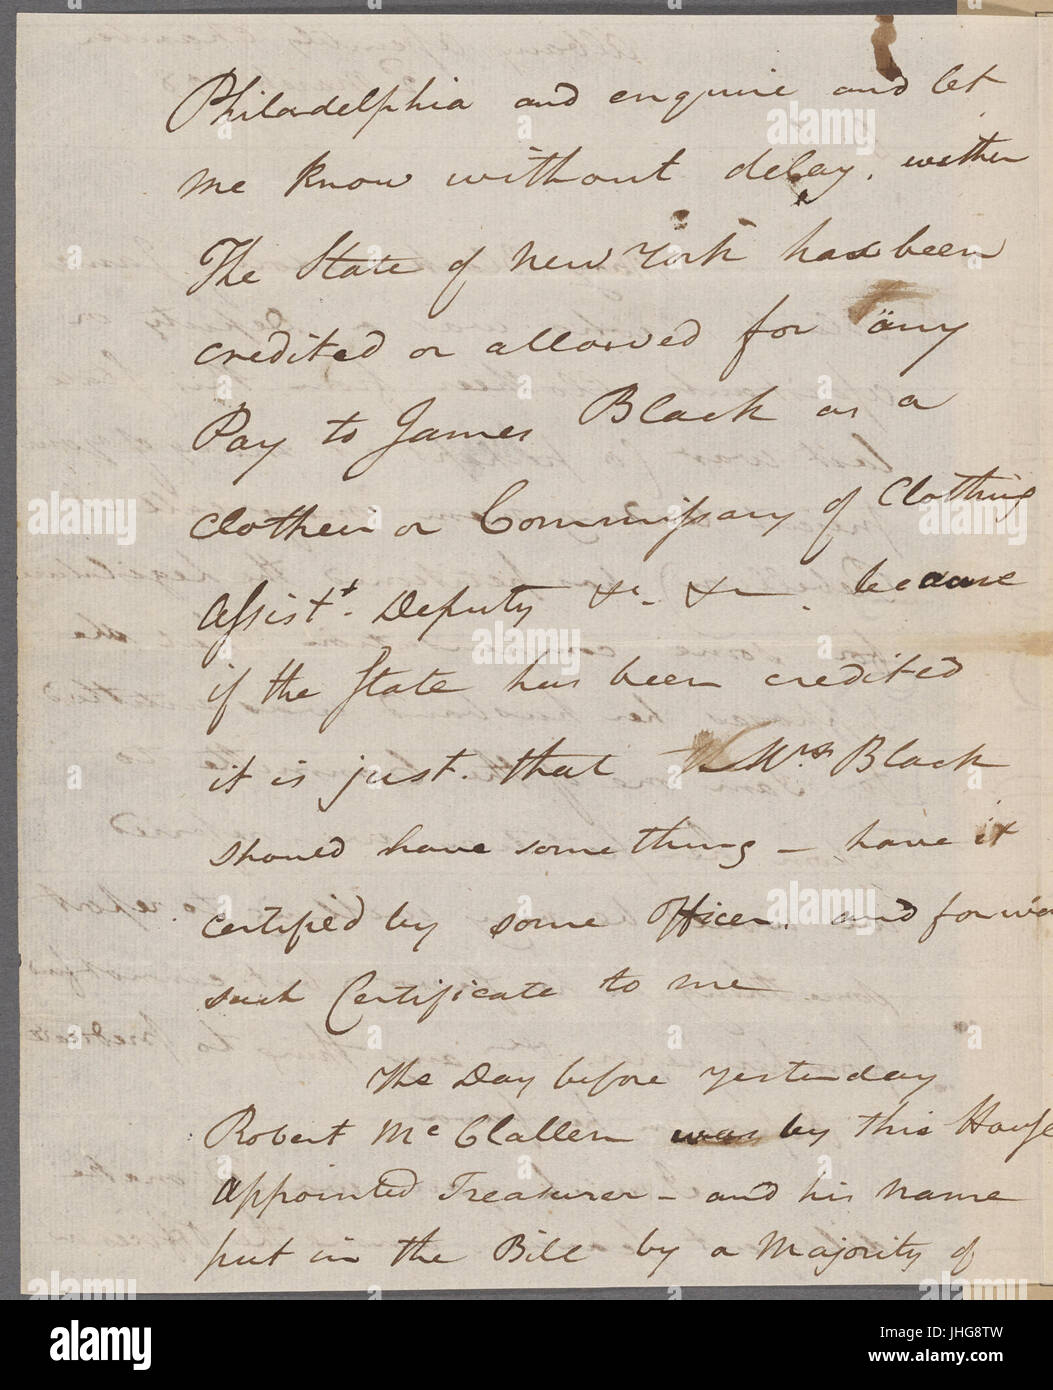 Philadelphia and enquire and let
me know without delay. wether
The State of New York has been
credited or allowed for any
Pay to James Black as a
Clothier or Commissary of Clothing
Assist.t Deputy &c. &c. because
if the State has been credited
it is just. that Mrs Black
should have something – have it
certified by some Officer. and forward
such Certificate to me
The Day before yesterday
Robert McClallen was by this House
appointed Treasurer – and his name
put in the Bill by a Majority of
alamy
JHG8TW
www.alamy.com